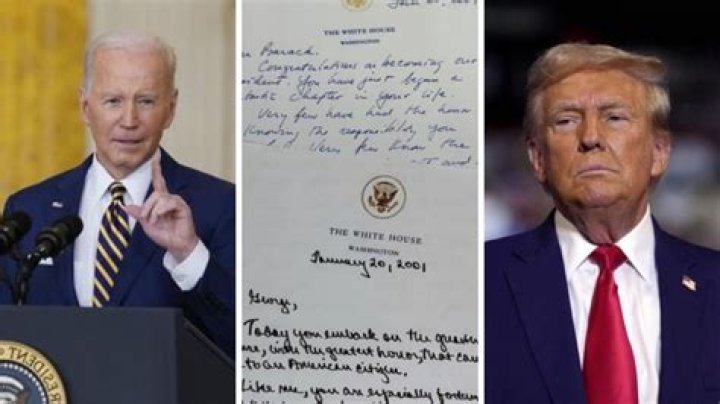 THE WHITE HOUSE
WASHINGTON
Barack.
Congratulations on becoming our
You have just begun a
chapter in your life.
Very few have had the honor
knowing the responsibility you
Very few know the
and
THE WHITE HOUSE
WASHINGTON
January 20, 2001
George,
Today you embark on the
with the greatest honor, that can
to an American citizen.
Like me, you are especially
PRESIDENT OF